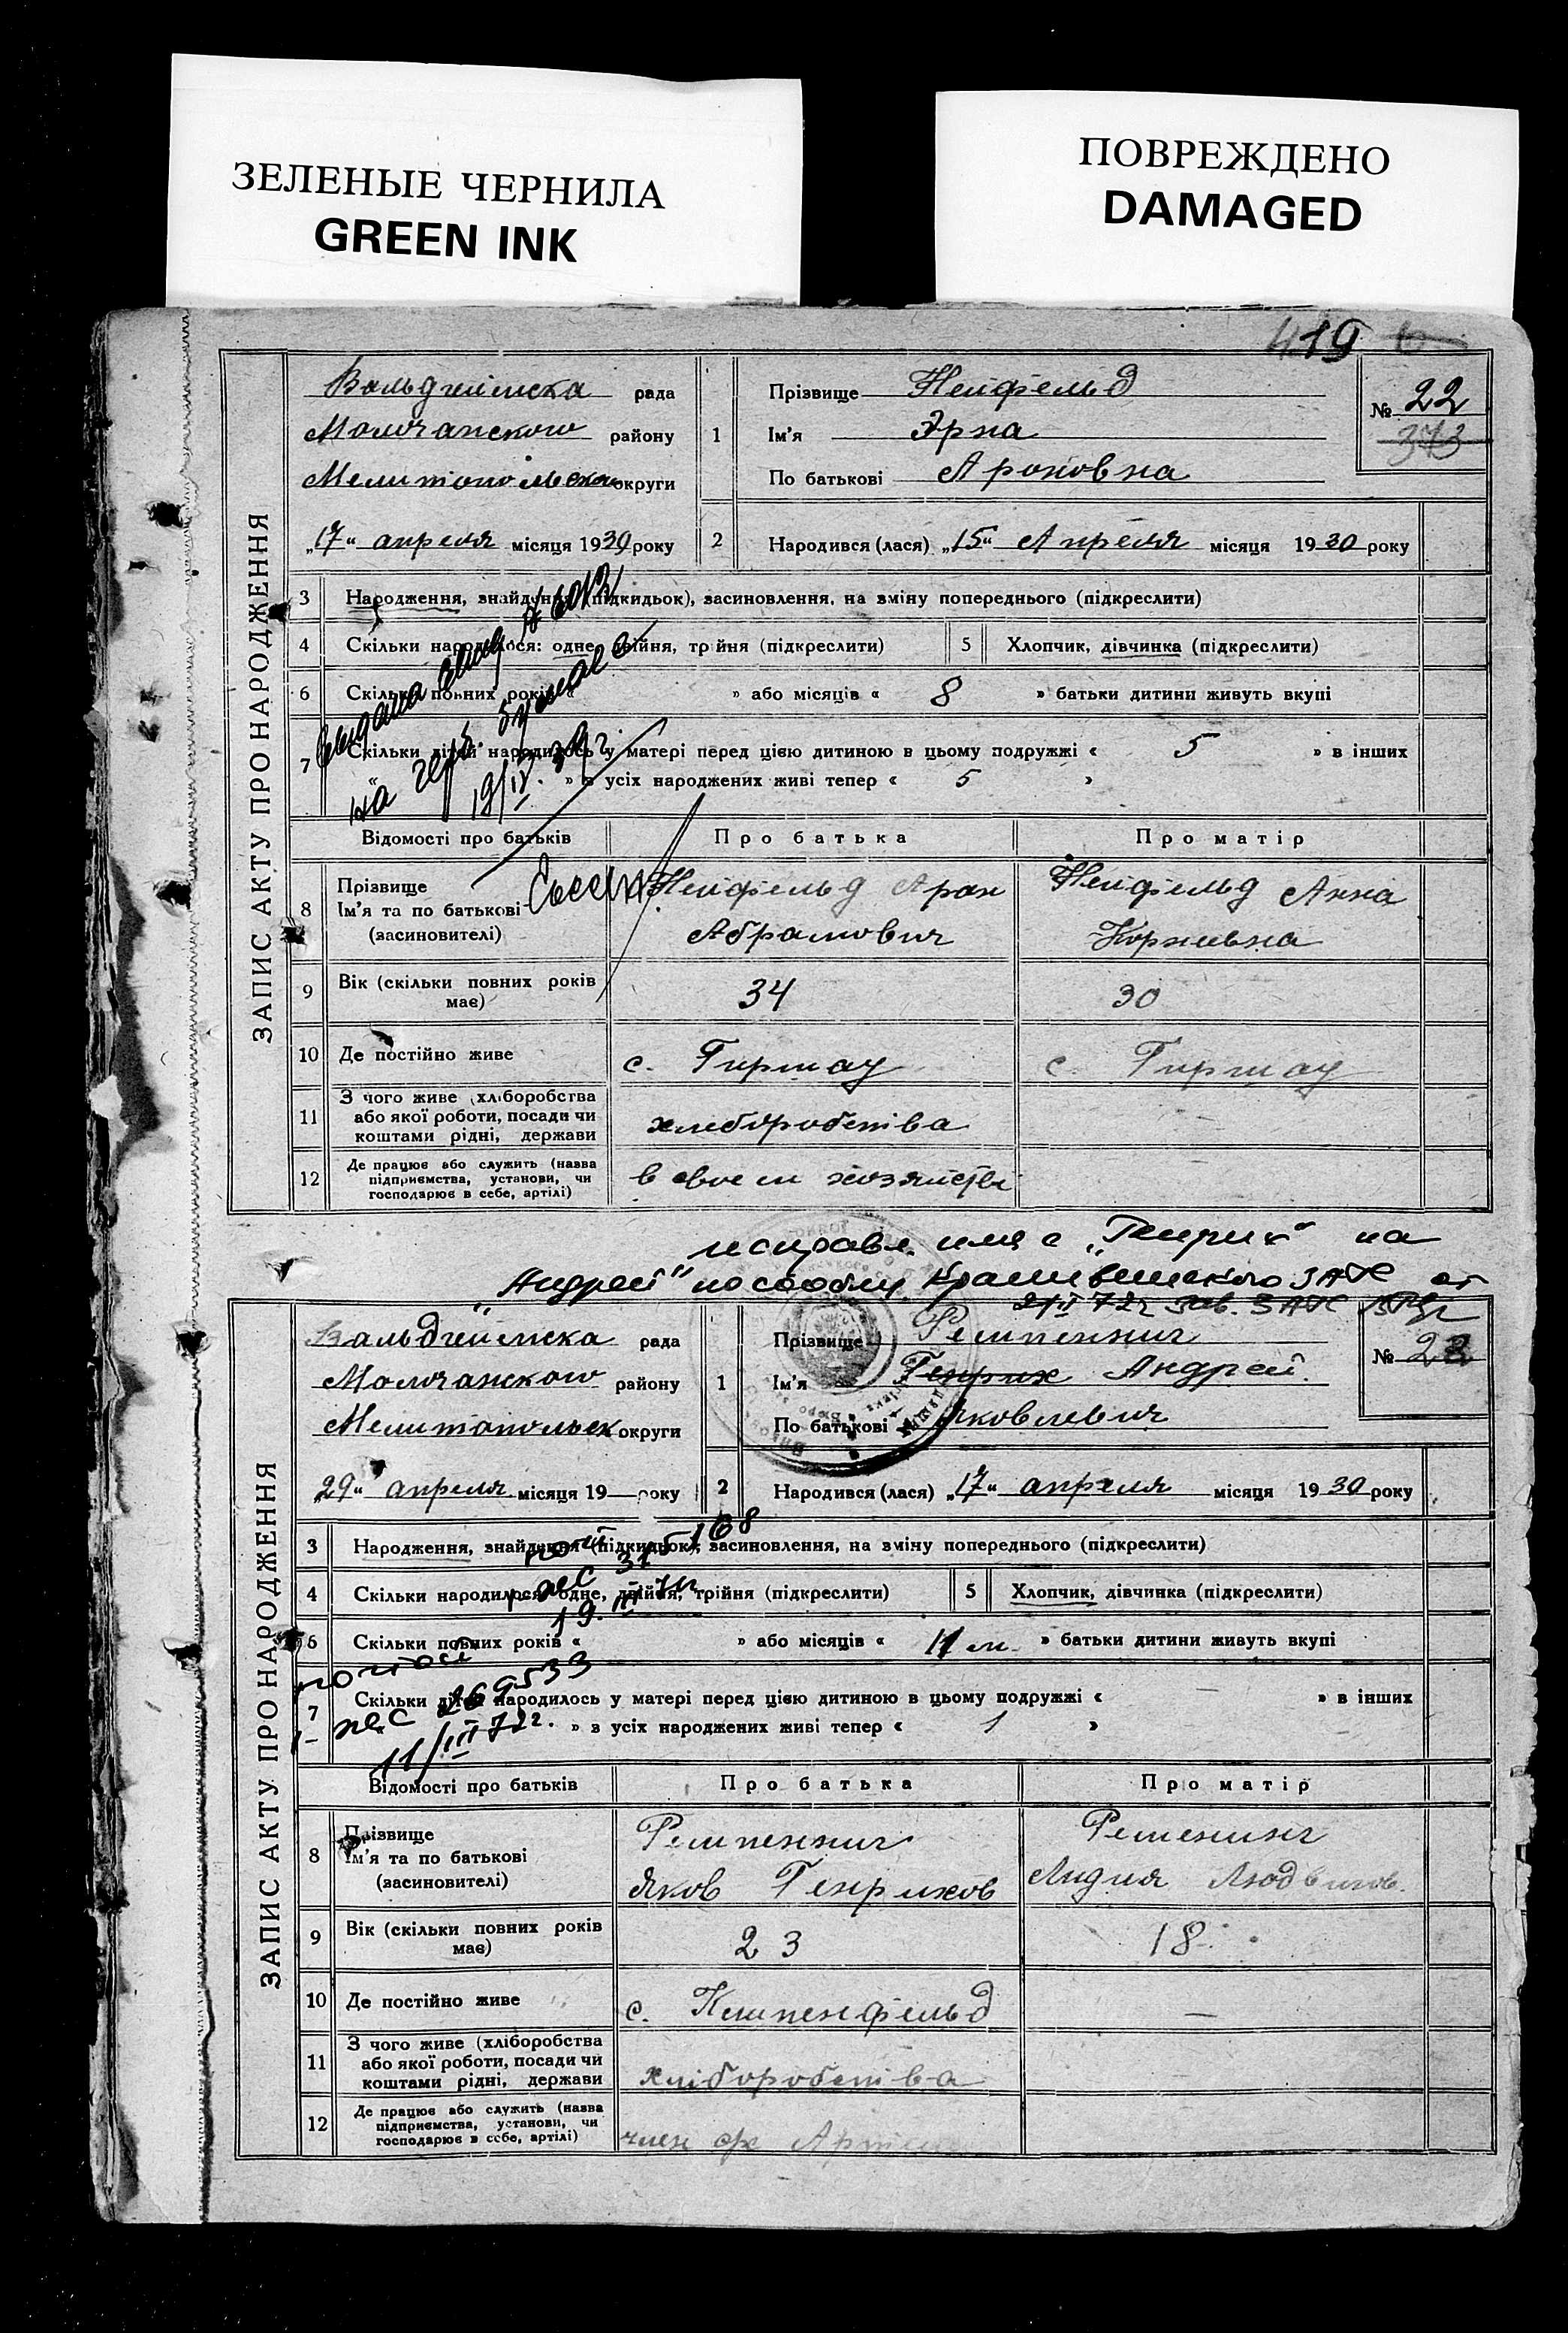 ЗЕЛЕНЫЕ ЧЕРНИЛА
GREEN INK
ПОВРЕЖДЕНО
DAMAGED
419
ЗАПИС АКТУ ПРО НАРОДЖЕННЯ
Вальдгеймска рада
Молочанского району
Мелитопольска округи
„17“ апреля місяця 1930 року
1 Прізвище Нейфельд
Ім'я Эрна
По батькові Ароновна
№ 22
373
2 Народився (лася) „15“ Апреля місяця 1930 року
3 Народження, знайдення (підкидьок), засиновлення, на зміну попереднього (підкреслити)
4 Скільки народилося: одне, двійня, трійня (підкреслити) 5 Хлопчик, дівчинка (підкреслити)
6 Скільки повних років « » або місяців « 8 » батьки дитини живуть вкупі
7 Скільки дітей народилось у матері перед цією дитиною в цьому подружжі « 5 » в інших
« » в усіх народжених живі тепер « 5 »
на герб. бумаге
19/IV. 39г.
Відомості про батьків Про батька Про матір
8 Прізвище Ім'я та по батькові (засиновителі)
Нейфельд Арон Абрамович
Нейфельд Анна Корнеевна
9 Вік (скільки повних років має) 34 30
10 Де постійно живе с. Гиршау с. Гиршау
11 З чого живе (хліборобства або якої роботи, посади чи коштами рідні, держави хлеборобства
12 Де працює або служить (назва підприємства, установи, чи господарює в себе, артілі) в своем хозяйстве
исправл. имя с „Генрих“ на
„Андрей“ по сообщ. ЗАГС от
21/II 72г зав. ЗАГС
ЗАПИС АКТУ ПРО НАРОДЖЕННЯ
Вальдгеймска рада
Молочанского району
Мелитопольск округи
„29“ апреля місяця 19 — року
1 Прізвище Ремпеннинг
Ім'я Генрих Андрей.
По батькові Яковлевич
№ 23
2 Народився (лася) „17“ апреля місяця 1930 року
3 Народження, знайдення (підкидьок), засиновлення, на зміну попереднього (підкреслити)
4 Скільки народилося: одне, двійня, трійня (підкреслити) 5 Хлопчик, дівчинка (підкреслити)
315168
19.III
6 Скільки повних років « » або місяців « 11 м. » батьки дитини живуть вкупі
7 Скільки дітей народилось у матері перед цією дитиною в цьому подружжі « — » в інших
» в усіх народжених живі тепер « 1 »
269533
11/III 72г.
Відомості про батьків Про батька Про матір
8 Прізвище Ім'я та по батькові (засиновителі)
Яков Генрихов
Лидия Людвигов.
9 Вік (скільки повних років має) 23 18
10 Де постійно живе с. Клипенфельд —
11 З чого живе (хліборобства або якої роботи, посади чи коштами рідні, держави хліборобства
12 Де працює або служить (назва підприємства, установи, чи господарює в себе, артілі) член